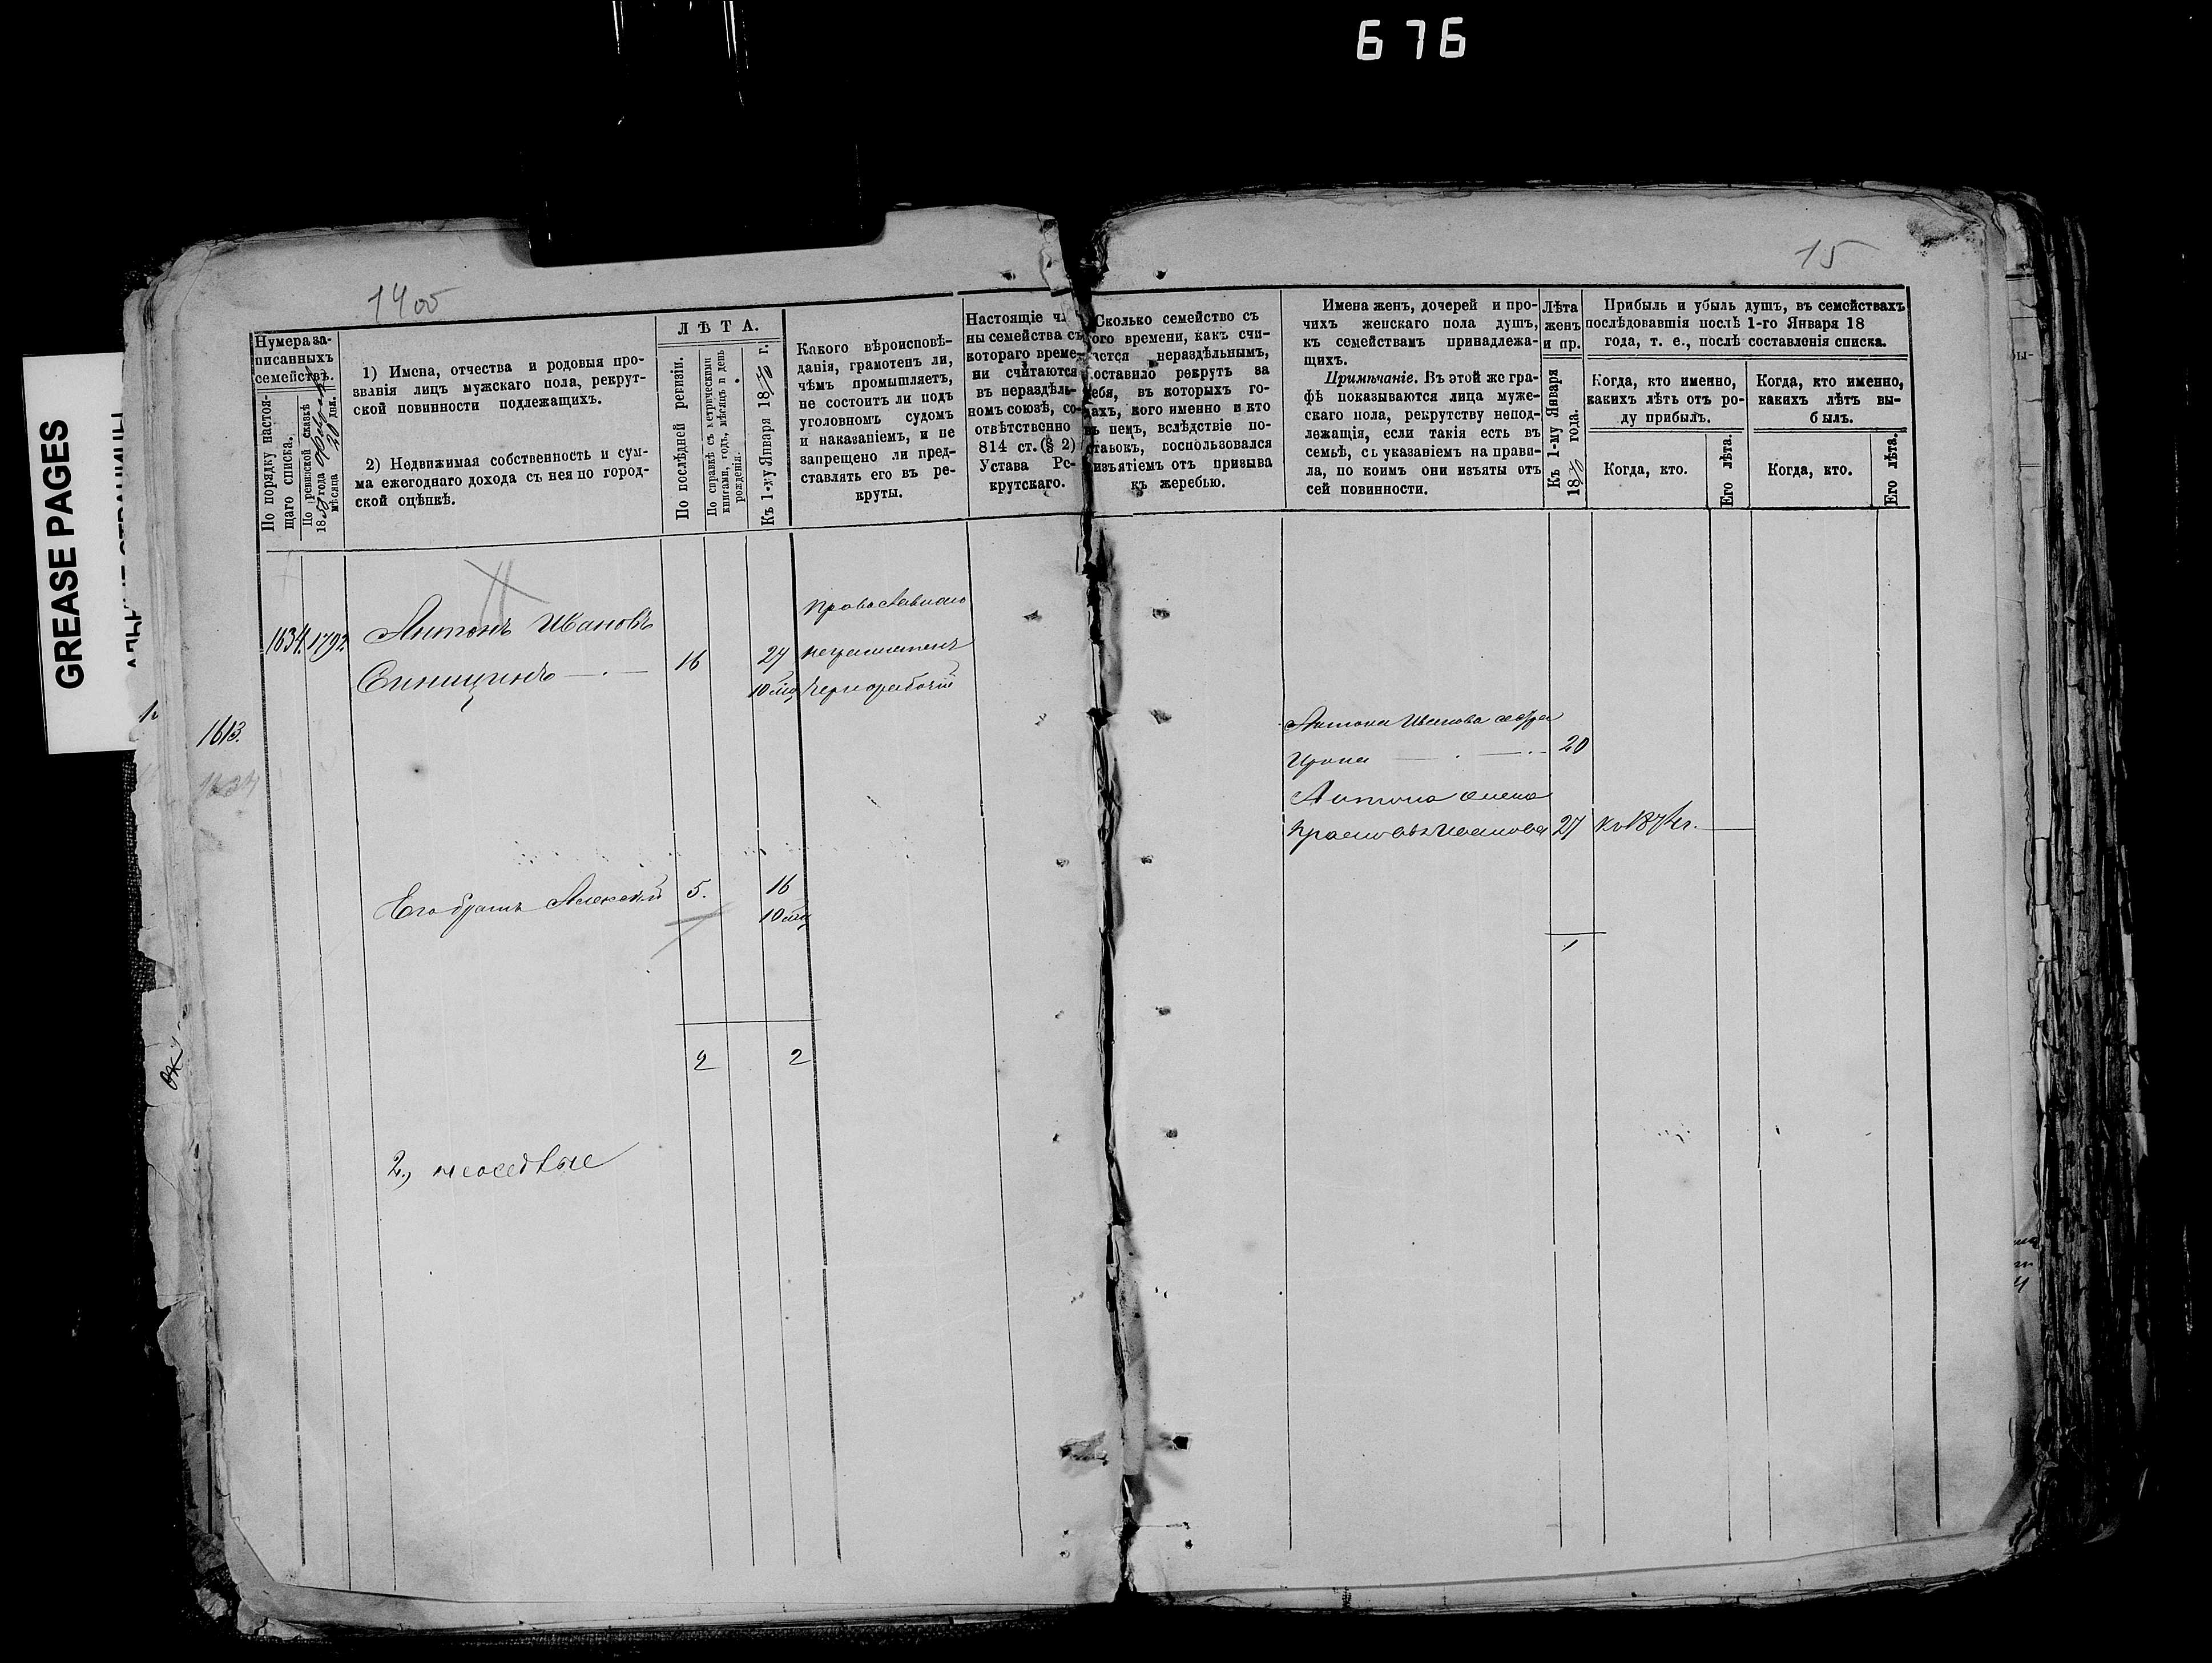 676
GREASE PAGES
1405
15
Нумера за-
писанныхъ
семействъ.
По порядку настоя-
щаго списка.
По ревизской сказкѣ
1858 года
мѣсяца 20 дня.
1) Имена, отчества и родовыя про-
званія лицъ мужскаго пола, рекрут-
ской повинности подлежащихъ.
2) Недвижимая собственность и сум-
ма ежегоднаго дохода съ нея по город-
ской оцѣнкѣ.
ЛѢТА.
По послѣдней ревизіи.
По справкѣ съ метрическими
книгами, годъ, мѣсяцъ и день
рожденія.
Къ 1-му Января 1870 г.
Какого вѣроисповѣ-
данія, грамотенъ ли,
чѣмъ промышляетъ,
не состоитъ ли подъ
уголовномъ судомъ
и наказаніемъ, и не
запрещено ли пред-
ставлять его въ ре-
круты.
Настоящіе чл
ны семейства съ
котораго време-
ни считаются
въ нераздѣль-
номъ союзѣ, со-
отвѣтственно
814 ст. (§ 2)
Устава Ре-
крутскаго.
Сколько семейство съ
того времени, какъ счи-
тается нераздѣльнымъ,
поставило рекрутъ за
себя, въ которыхъ го-
дахъ, кого именно и кто
въ немъ, вслѣдствіе по-
ставокъ, воспользовался
изъятіемъ отъ призыва
къ жеребью.
Имена женъ, дочерей и про-
чихъ женскаго пола душъ,
къ семействамъ принадлежа-
щихъ.
Примѣчаніе. Въ этой же гра-
фѣ показываются лица муже-
скаго пола, рекрутству непод-
лежащія, если такія есть въ
семьѣ, съ указаніемъ на прави-
ла, по коимъ они изъяты отъ
сей повинности.
Лѣта
женъ
и пр.
Къ 1-му Января
1870 года.
Прибыль и убыль душъ, въ семействахъ
послѣдовавшія послѣ 1-го Января 18
года, т. е., послѣ составленія списка.
Когда, кто именно,
какихъ лѣтъ отъ ро-
ду прибылъ.
Когда, кто.
Его лѣта.
Когда, кто именно,
какихъ лѣтъ вы-
былъ.
Когда, кто.
Его лѣта.
1634. 1792. Антонъ Ивановъ
Синицинъ 16 27
10 мц
православнаго
неграмотенъ
чернорабочій
1613.
Антона Иванова сестра
Ирина 20
Антона жена
Ивановa 27 къ 1874 г.
Его братъ Алексѣй 5. 16
10 мц
1
2 2
2,